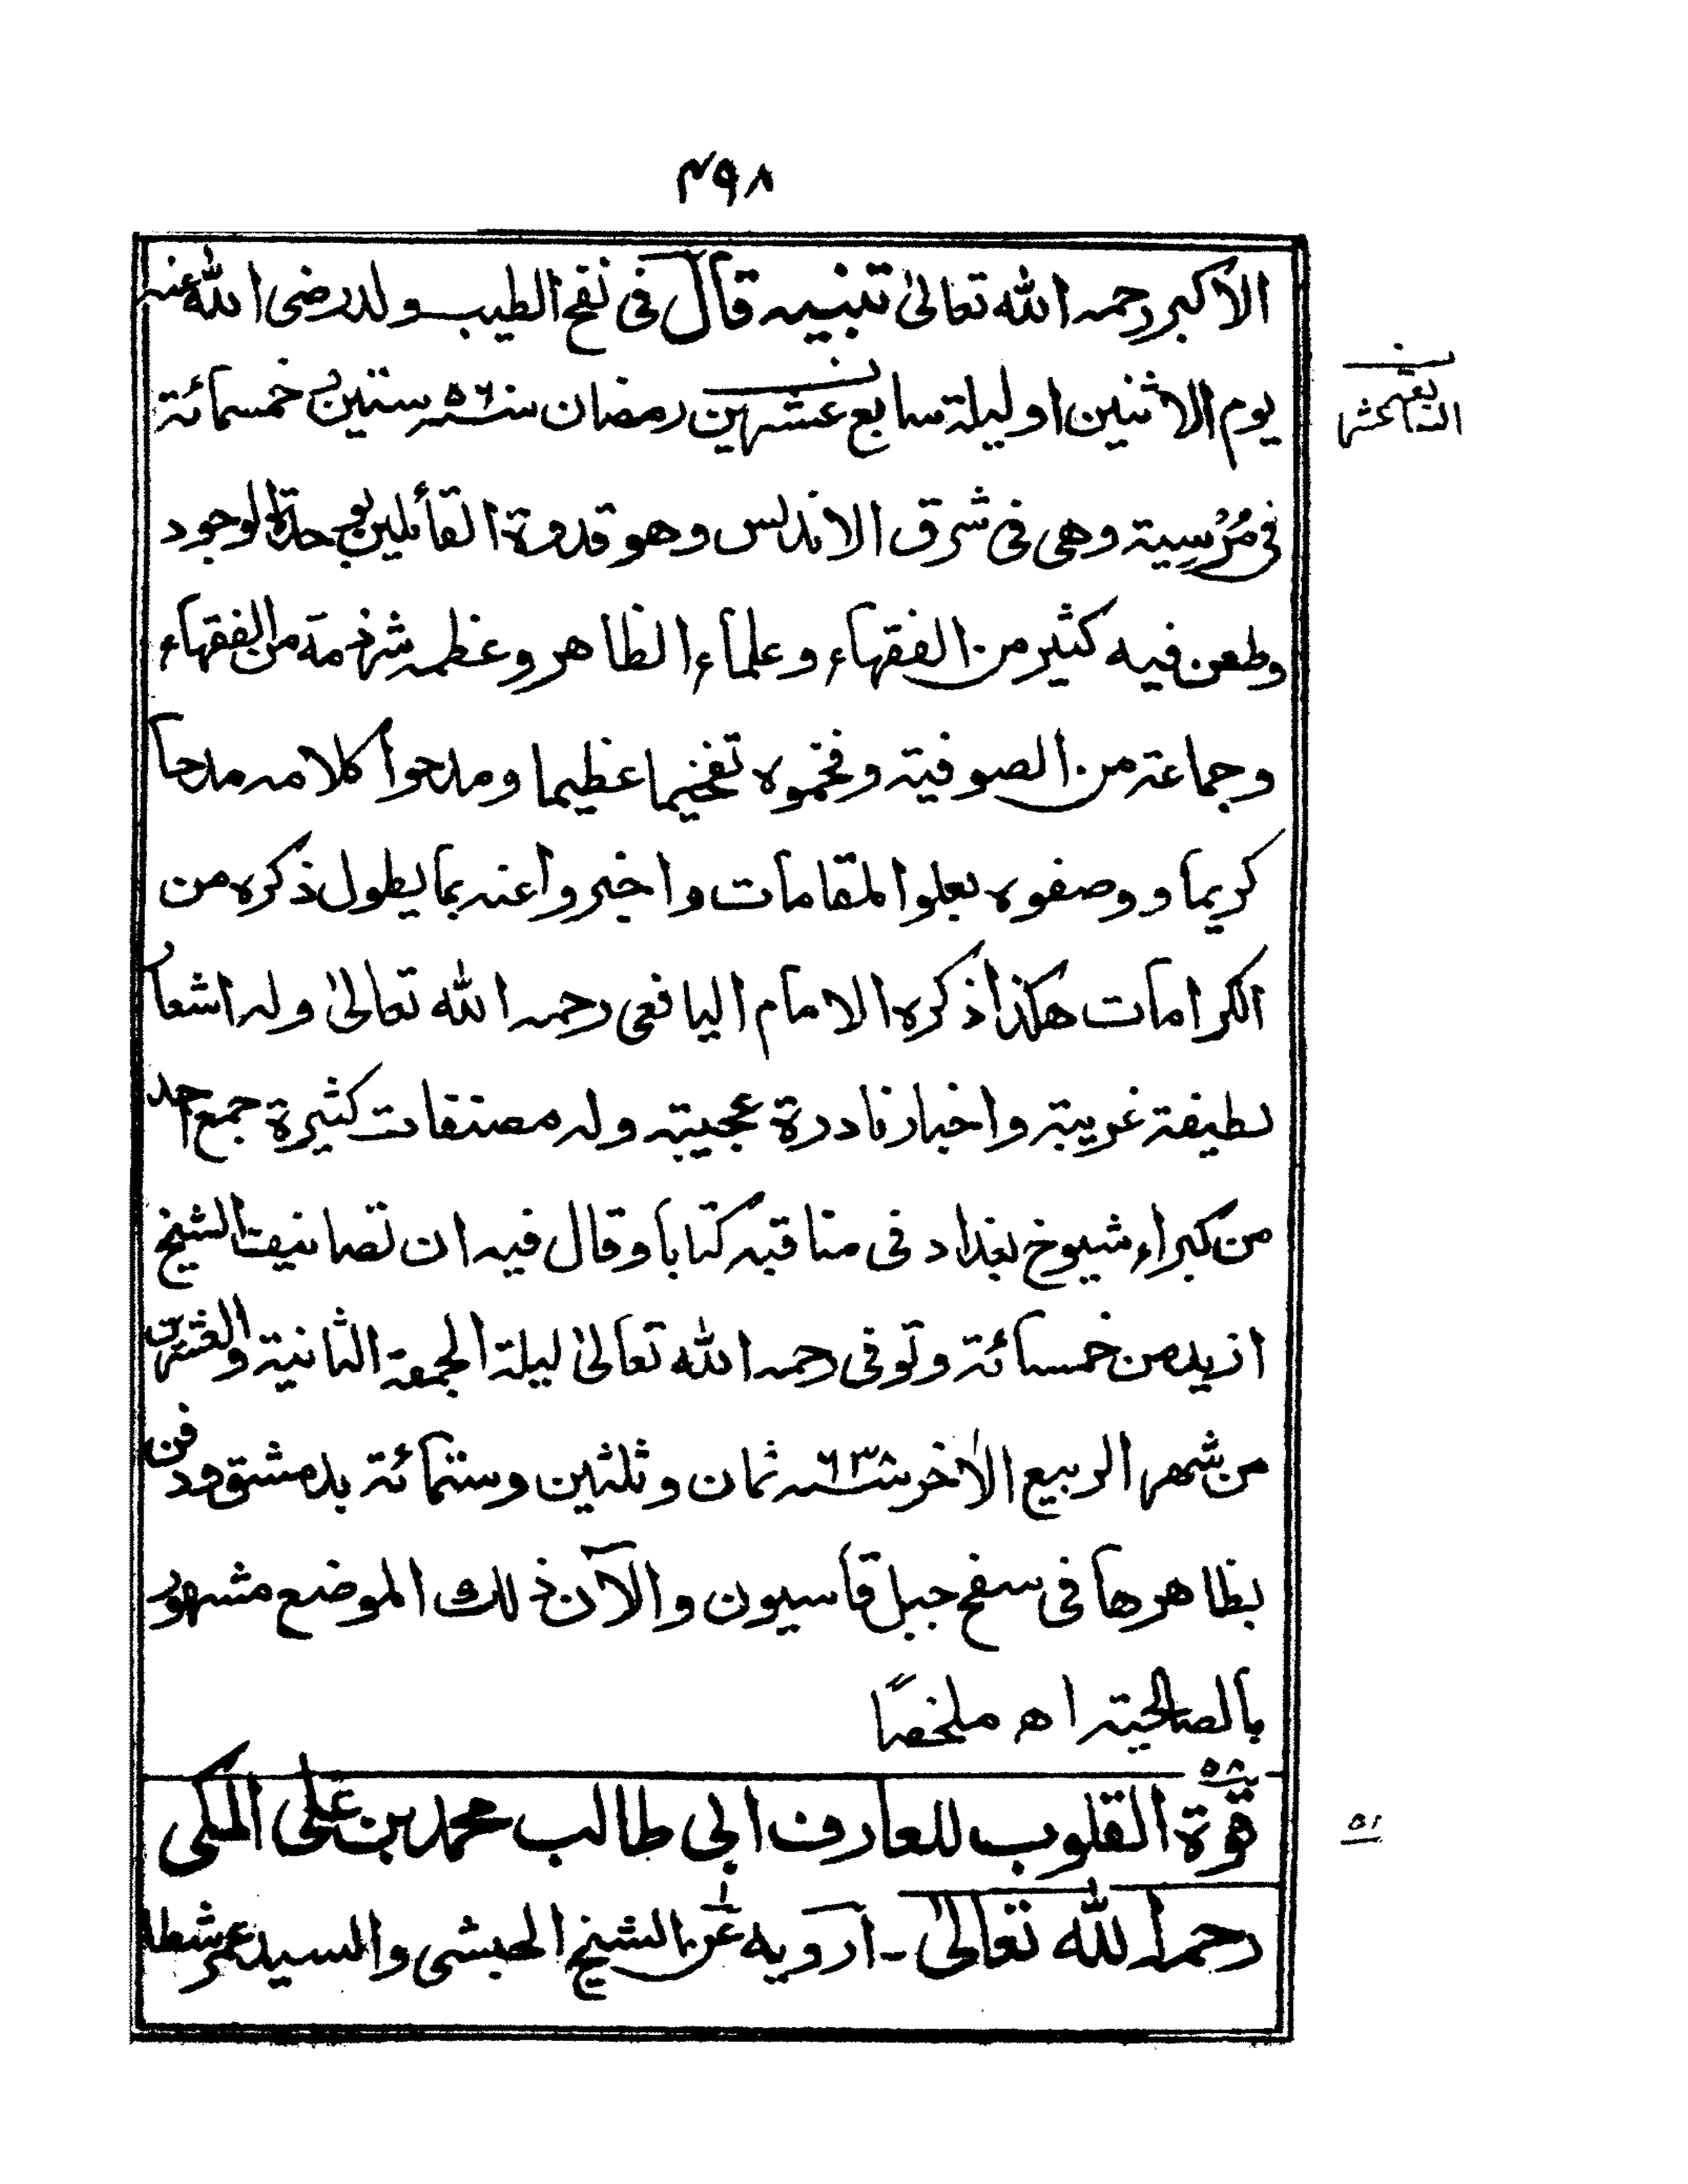 ٤٩٨
الأكبر رحمه الله تعالىٰ تنبيه قال فى نفح الطيب ولد رضى الله عنه
يوم الاثنين او ليلة سابع عشرين رمضان سنة ٥٦٠ ستين وخمسمائة
فى مُرْسِية وهى فى شرق الاندلس وهو قدوة القائلين بوحدة الوجود
وطعن فيه كثير من الفقهاء وعلماء الظاهر وعظمه شرذمة من الفقهاء
وجماعة من الصوفية وفخموه تفخيما عظيما ومدحوا كلامه مدحا
كريما ووصفوه بعلو المقامات واخبروا عنه بما يطول ذكره من
الكرامات هكذا ذكره الامام اليافعى رحمه الله تعالىٰ وله اشعار
لطيفة غريبة واخبار نادرة عجيبة وله مصنفات كثيرة جمع احد
من كبراء شيوخ بغداد فى مناقبه كتابا وقال فيه ان تصانيف الشيخ
ازيد من خمسمائة وتوفى رحمه الله تعالىٰ ليلة الجمعة الثانية والعشرين
من شهر الربيع الآخر سنة ٦٣٨ ثمان وثلثين وستمائة بدمشق ودفن
بظاهرها فى سفح جبل قاسيون والآن ذلك الموضع مشهور
بالصالحية اه ملخصًا
قوة القلوب للعارف ابى طالب محمد بن على المكى
٥١
رحمه الله تعالىٰ - ارويه عن الشيخ الحبشى والسيد عمر شطا